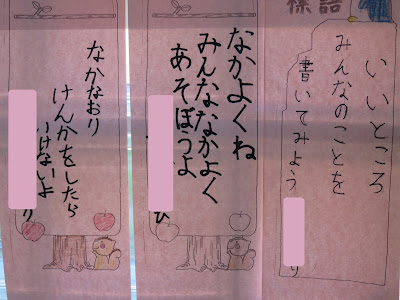 標語
いいところ
みんなのことを
書いてみよう
なかよくね
みんななかよく
あそぼうよ
なかなおり
けんかをしたら
いけないよ